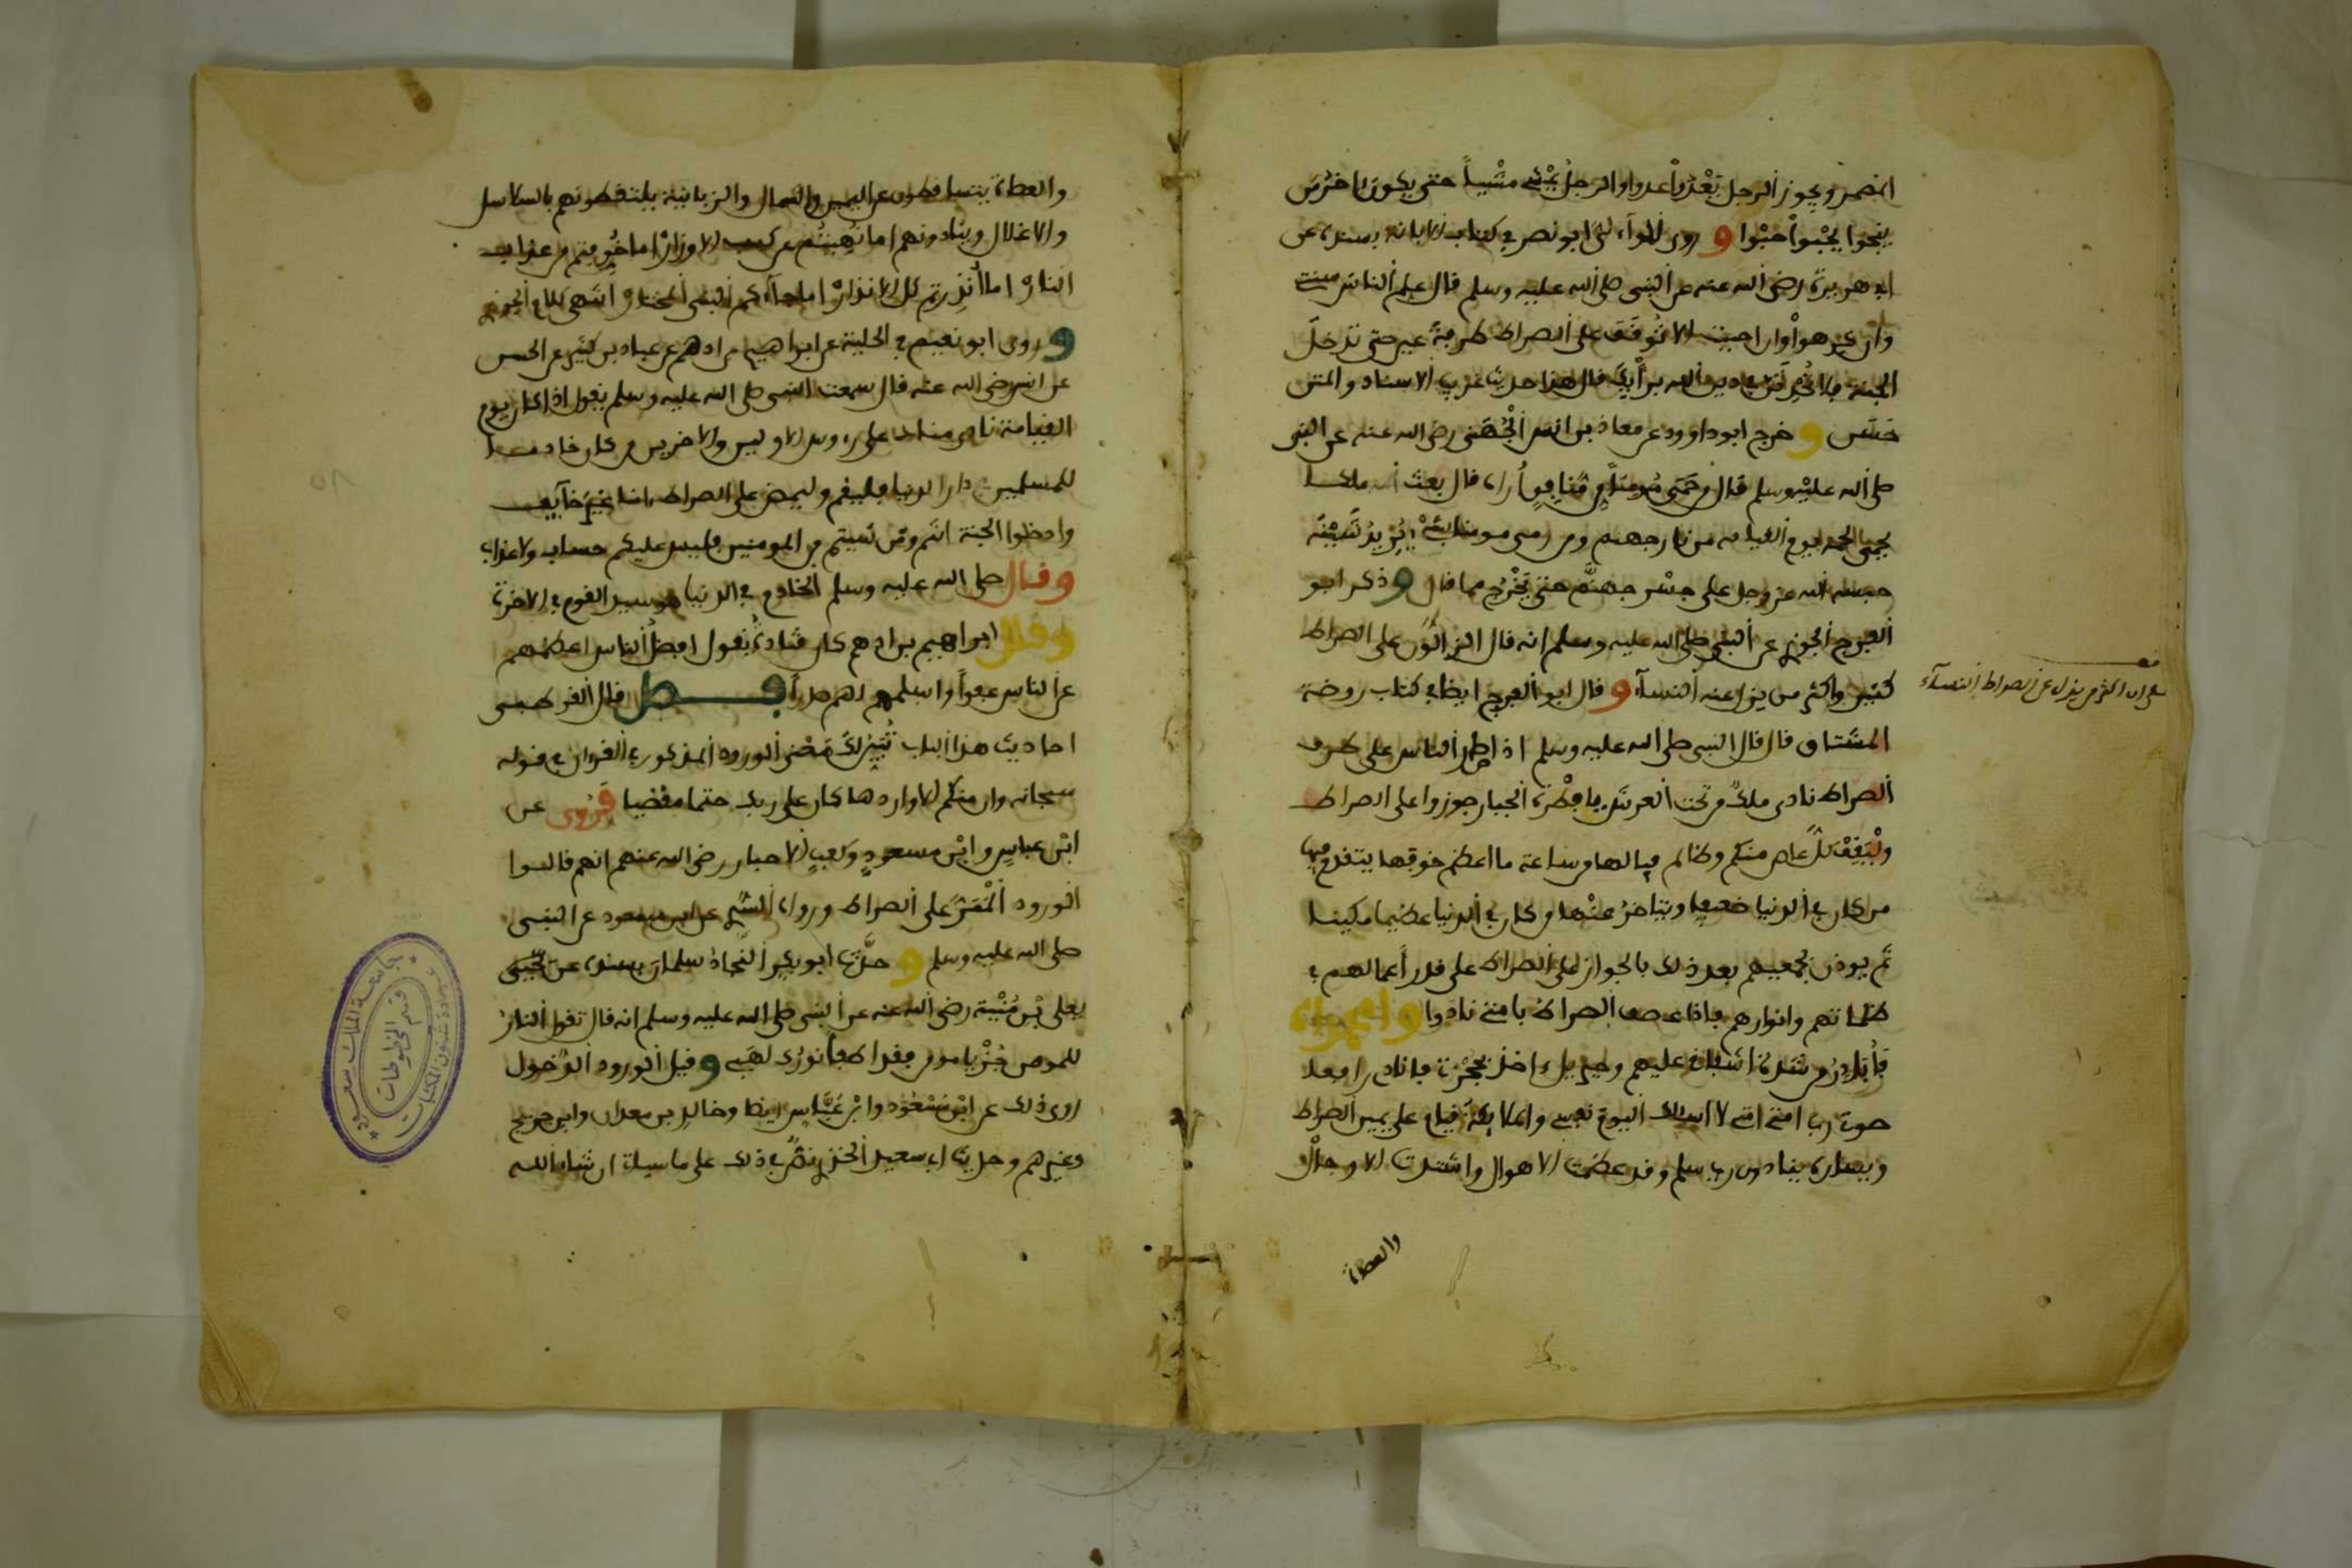 المضمر ويجوز الرجل يعدوا عدوا والرجل يمشى مشيا حتى يكون اخرمن
ينجوا يحبوا حبوا و روى الوآءلى ابو نصر في كتاب الابانة بسنده عن
ابى هريرة رضى الله عنه عن النبى صلى الله عليه وسلم قال علم الناس سنتى
وان كرهوا وان احببت الا توقف على الصراط طرفة عين حتى تدخل
الجنة فلا تحدثن في دين الله برأيك قال هذا حديث غريب الاسناد والمتن
حسن و خرج ابو داوود عن معاذ بن انس الجهنى رضى الله عنه عن النبى
صلى الله عليه وسلم قال من حمى مومنا من منافق أراه قال بعث الله ملكا
يحمى لحمه يوم القيامة من نار جهنم ومن رمى مومنا بشىء يريد شينه
حبسه الله عز وجل على جسر جهنم حتى يخرج مما قال و ذكر ابو
الفرج الجوزى عن النبى صلى الله عليه وسلم انه قال الزالون على الصراط
كثير واكثر من يزل عنه النسآء و قال ابو الفرج ايضا في كتاب روضة
المشتاق قال قال النبى صلى الله عليه وسلم اذا صار الناس على طرف
الصراط نادى ملك من تحت العرش يا فطرة الجبار جوزوا على الصراط
وليقف كل عاص منكم وظالم فيا لها من ساعة ما اعظم خوفها يتقدم فيها
من كان في الدنيا ضعيفا ويتاخر عنها من كان في الدنيا عظيما مكينا
ثم يوذن لجميعهم بعد ذلك بالجواز على الصراط على قدر أعمالهم في
ظلماتهم وانوارهم فاذا عصف الصراط بامتى نادوا وامحمداه
فأبادر من شدة اشفافى عليهم وجبريل اخذ بحجزتى فانادى رافعا
صوتى رب امتى امتى لا اسالك اليوم نفسى والملايكة قيام على يمين الصراط
ويساره ينادون رب سلم وقد عظمت الاهوال واشتدت الاوجال
والعصاة
قف
على ان اكثر من يزل عن الصراط النسآء
والعصاة يتساقطون عن اليمين والشمال والزبانية يلتقطونهم بالسلاسل
والاغلال وينادونهم اما نهيتم عن كسب الاوزار اما خوفتم من عذاب
النار اما أنذرتم كل الانذار اما جآءكم النبى المختار انتهى كلام الجوزى
و روى ابو نعيم في الحلية عن ابراهيم بن ادهم عن عباد بن كثير عن الحسن
عن انس رضى الله عنه قال سمعت النبى صلى الله عليه وسلم يقول اذا كان يوم
القيامة نادى مناد على روس الاولين والاخرين من كان خادما
للمسلمين في دار الدنيا فليقم وليمض على الصراط امنا غير خآيف
وادخلوا الجنة انتم ومن شيتم من المومنين فليس عليكم حساب ولا عذاب
وقال صلى الله عليه وسلم الخادم في الدنيا هو سيد القوم في الاخرة
وقال ابراهيم بن ادهم كان قتادة يقول افضل الناس اعظمهم
عن الناس عفوا واسلمهم لهم صدرا فصل قال القرطبى
احاديث هذا الباب تبين لك معنى الورود المذكور في القران في قوله
سبحانه وان منكم الا واردها كان على ربك حتما مقضيا فروى عن
ابن عباس وابن مسعود وكعب الاحبار رضى الله عنهم انهم قالوا
الورود الممر على الصراط ورواه السدى عن ابن مسعود عن النبى
صلى الله عليه وسلم و حدث ابو بكر النجاد سلمان بسنده عن
يعلى بن منية رضى الله عنه عن النبى صلى الله عليه وسلم انه قال تقول النار
للمومن جز يا مومن فقد اطفأ نورك لهبى و قيل الورود الدخول
روى ذلك عن ابن مسعود وابن عباس ايضا وخالد بن معدان وابن جريج
وغيرهم وحديث ابى سعيد الخدرى نص في ذلك على ما سياتى ان شاء الله
جامعة الملك سعود
عمادة شئون المكتبات
قسم المخطوطات